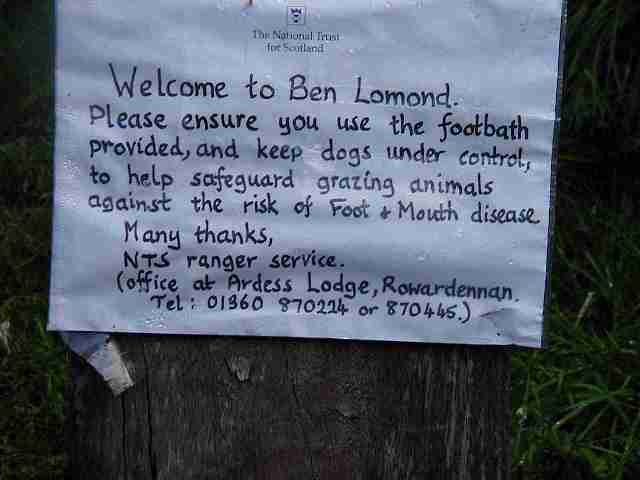 The National Trust
for Scotland
Welcome to Ben Lomond.
Please ensure you use the footbath
provided, and keep dogs under control,
to help safeguard grazing animals
against the risk of Foot & Mouth disease
Many thanks,
NTS ranger service.
(office at Ardess Lodge, Rowardennan.
Tel: 01360 870224 or 870445.)